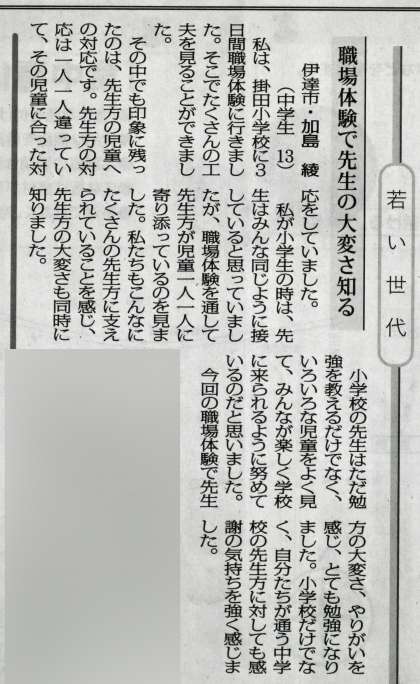 若い世代
職場体験で先生の大変さ知る
伊達市・加島 綾
(中学生 13)
私は、掛田小学校に3
日間職場体験に行きまし
た。そこでたくさんの工
夫を見ることができまし
た。
その中でも印象に残っ
たのは、先生方の児童へ
の対応です。先生方の対
応は一人一人違ってい
て、その児童に合った対
応をしていました。
私が小学生の時は、先
生はみんな同じように接
していると思っていまし
たが、職場体験を通して
先生方が児童一人一人に
寄り添っているのを見ま
した。私たちもこんなに
たくさんの先生方に支え
られていることを感じ、
先生方の大変さも同時に
知りました。
小学校の先生はただ勉
強を教えるだけでなく、
いろいろな児童をよく見
て、みんなが楽しく学校
に来られるように努めて
いるのだと思いました。
今回の職場体験で先生
方の大変さ、やりがいを
感じ、とても勉強になり
ました。小学校だけでな
く、自分たちが通う中学
校の先生方に対しても感
謝の気持ちを強く感じま
した。